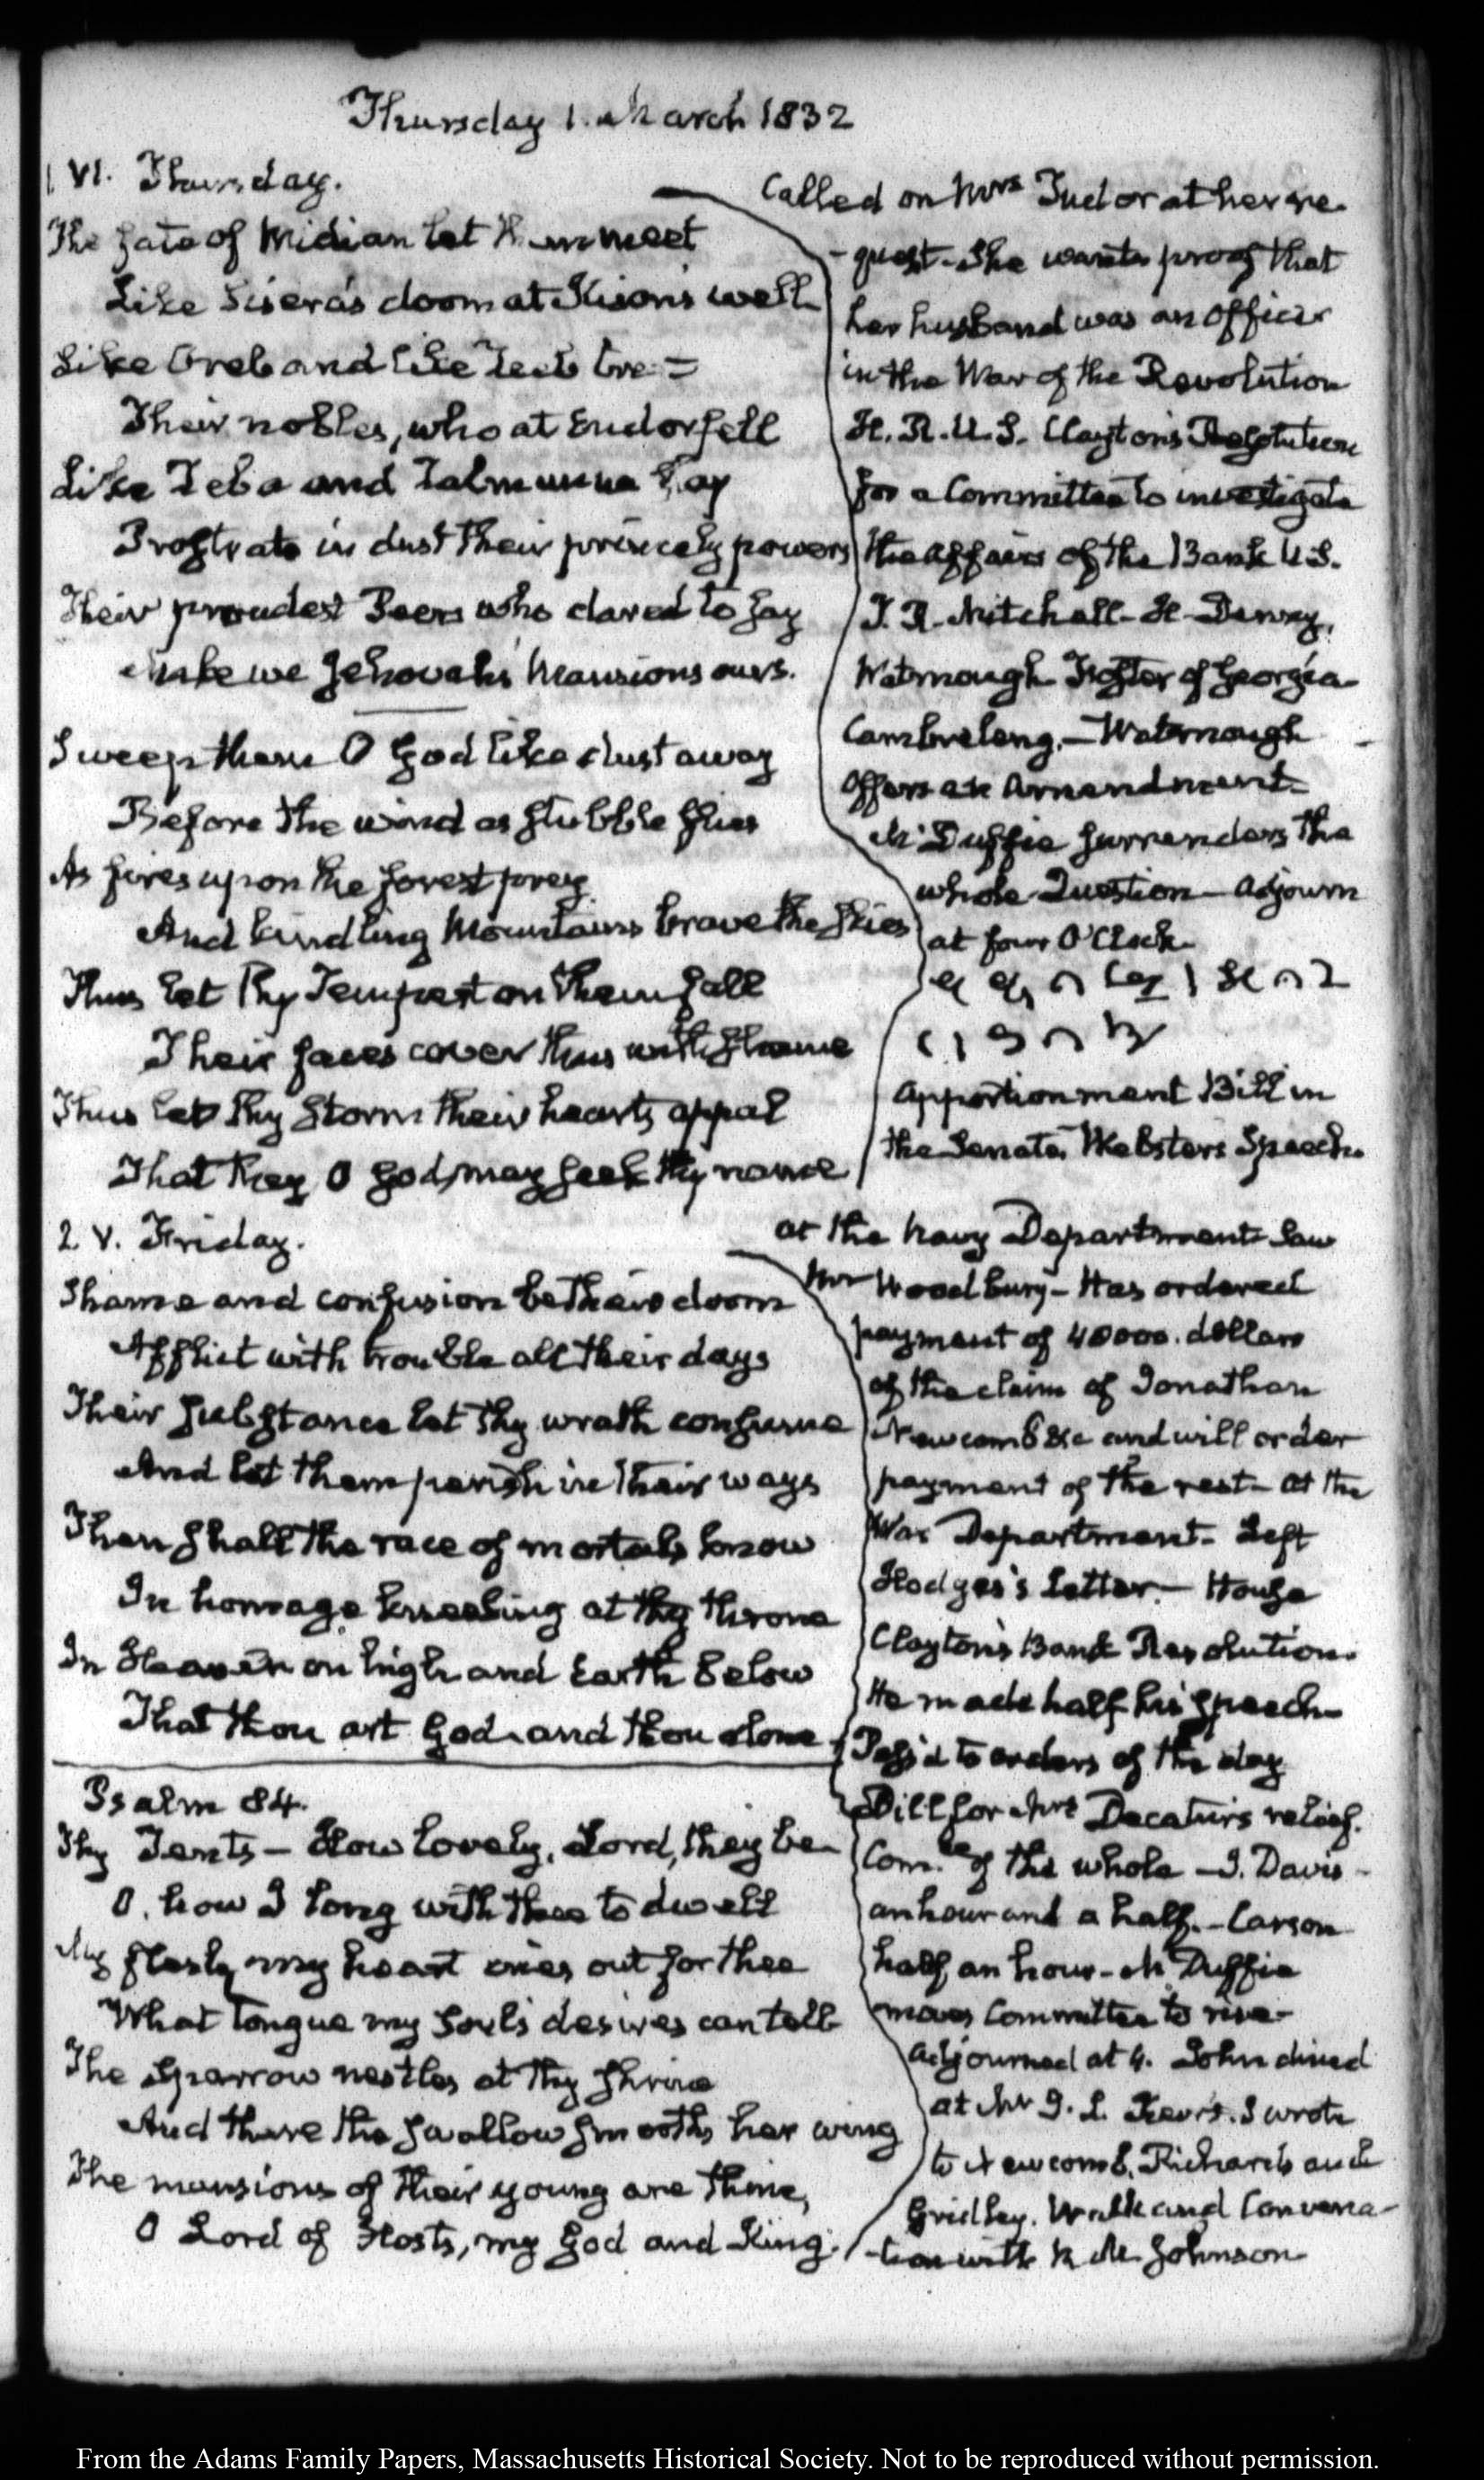 Thursday 1. March 1832
1 VI. Thursday.
The fate of Midian let them meet
Like Sisera's doom at Kison's well
Like Oreb and like Zeeb be =
Their nobles, who at Endor fell
Like Zeba and Zalmunna lay
Prostrate in dust their princely powers
Their proudest Peers who dared to say
Make we Jehovah's Mansions ours.
Sweep them O God like dust away
Before the wind as stubble flies
As fires upon the forest prey
And kindling Mountains brave the skies
Thus let thy Tempest on them fall
Their faces cover thus with shame
Thus let thy Storm their hearts appal
That they, O God, may seek thy name
Called on Mrs Tudor at her re-
-quest. She wants proof that
her husband was an officer
in the War of the Revolution
H. R. U.S. Clayton's Resolution
for a Committee to investigate
the affairs of the Bank U.S.
T. R. Mitchell - H. Denny,
Watmough Foster of Georgia
Cambreleng. - Watmough
offers an Amendment -
McDuffie surrenders the
whole Question - adjourn
at four O'Clock -
Apportionment Bill in
the Senate, Webster's Speech.
2 V. Friday.
Shame and confusion be their doom
Afflict with trouble all their days
Their substance let thy wrath consume
And let them perish in their ways
Then shall the race of mortals know
In homage kneeling at thy throne
In Heaven on high and Earth below
That thou art God and thou alone.
Psalm 84.
Thy Tents - How lovely, Lord, they be
O. how I long with thee to dwell
My flesh, my heart cries out for thee
What tongue my Soul's desires can tell
The Sparrow nestles at thy shrine
And there the swallow smooths her wing
The mansions of their young are thine,
O Lord of Hosts, my God and King.
at the Navy Department saw
Mr Woodbury - Has ordered
payment of 40000. dollars
of the claim of Jonathan
Newcomb &c and will order
payment of the rest - at the
War Department. Left
Hodges's Letter. - House
Clayton's Bank Resolution.
He made half his speech -
Pass'd to orders of the day
Bill for Mrs Decatur's relief.
Com.ee of the whole - J. Davis -
an hour and a half. - Carson
half an hour - McDuffie
moves Committee to rise -
adjourned at 4. John dined
at Mr J. L. I wrote
to Newcomb, Richards and
Gridley. Walk and Conversa-
-tion with R. M. Johnson
From the Adams Family Papers, Massachusetts Historical Society. Not to be reproduced without permission.